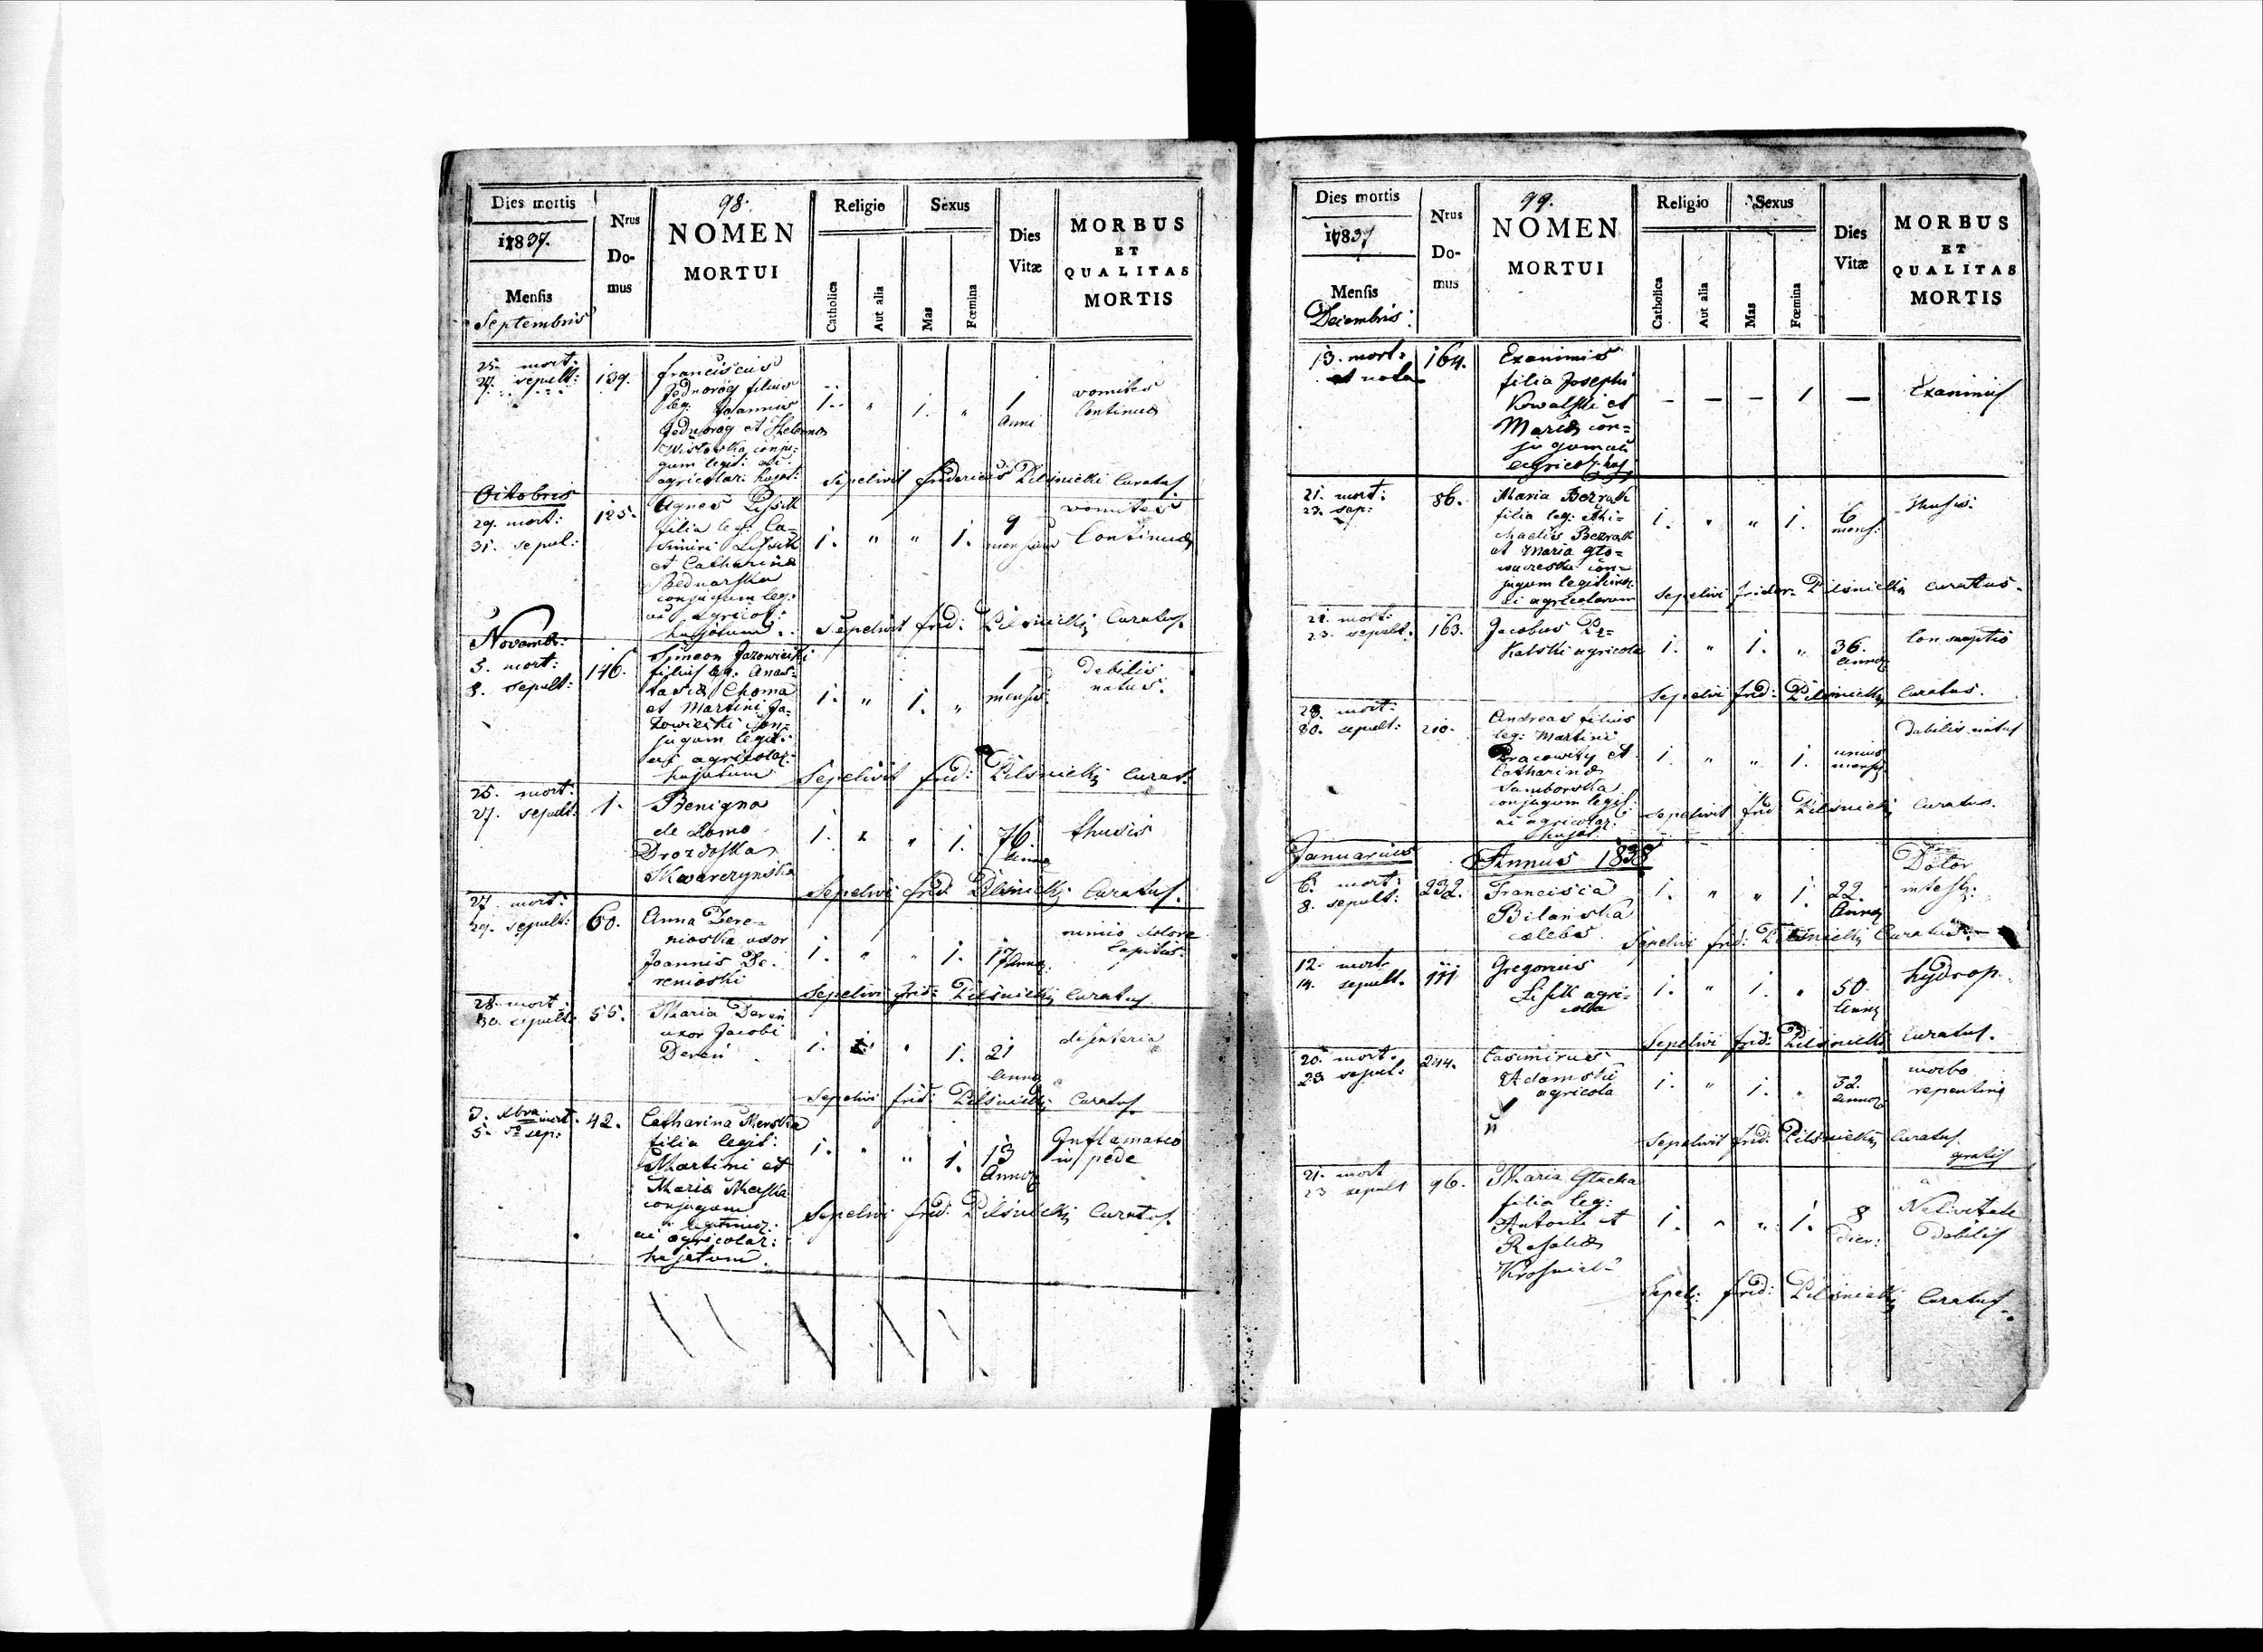 Dies mortis
1837.
Mensis
Septembris
Nrus
Do-
mus
98.
NOMEN
MORTUI
Religio
Catholica
Aut alia
Sexus
Mas
Fœmina
Dies
Vitæ
MORBUS
ET
QUALITAS
MORTIS
25. mort:
27. sepult:
139.
Franciscus
Jednorog filius
leg: Joannis
Jednorog et Helena
conju-
gum legit:
agricolar: hujat:
1. " 1. "
1
Anni
vomitus
Continuus
Sepelivit Fridericus Pilsnicki Curatus.
Octobris
29. mort:
31. sepul:
125.
Agnes Lissik
filia leg: Ca-
simiri Lissik
et Catharina
Bednarska
conjugum leg:
ac agricol:
hujatum.
1. " " 1.
9
mensium
vomitus
Continuus
Sepelivit frid: Pilsnicki Curatus.
Novemb:
5. mort:
8. sepult:
146.
Simeon Jazowiecki
filius leg: Anas-
tasiæ Choma
et Martini Ja-
zowiecki con-
jugum legit:
agricolar:
hujatum
1. " 1. "
1
mensis
debilis
natus.
Sepelivit frid: Pilsnicki Curat:
25. mort:
27. sepult:
1.
Benigna
de Lomo
Drozdoska
Skwarczynska
1. " " 1.
76
Anno
thusis
Sepelivi frid: Pilsnicki Curatus.
27. mort:
29. sepult:
60.
Anna Dere-
nioska uxor
Joannis De-
renioski
1. " " 1.
17 Anno
nimio dolore
Capitis.
Sepelivi frid: Pilsnicki Curatus
28. mort:
30. sepult:
55.
Maria Dereń
uxor Jacobi
Dereń
1. " 1.
21
Anno
disenteria
Sepelivi frid: Pilsnicki Curatus
3. Xbra mort.
5. sep:
42.
Catharina Merska
filia legit:
Martini et
Maria Merska
conjugum
legitimor:
ac agricolar:
hujatum.
1. " " 1.
13
Annor
Inflamatio
in pede
Sepelivi frid: Pilsnicki Curatus.
Dies mortis
1837
Mensis
Decembris:
Nrus
Do-
mus
99.
NOMEN
MORTUI
Religio
Catholica
Aut alia
Sexus
Mas
Fœmina
Dies
Vitæ
MORBUS
ET
QUALITAS
MORTIS
13. mort:
et nota
164.
Exanimis
filia Josephi
Kowalski et
Maria con-
jugum ac
agricol: huj:
— — — 1 —
Exanimis
21. mort:
23. sep:
86.
Maria Bezrak
filia leg: Mi-
chaelis Bezrak
et Maria Gło-
waceska con-
jugum legitimor:
ac agricolarum
1. " " 1.
6
mens:
thusis:
Sepelivi frider: Pilsnicki curatus.
21. mort:
23. sepult:
163.
Jacobus Pę-
kalski agricola
1. " 1. "
36.
Annor
Consumptio
Sepelivi frid: Pilsnicki Curatus.
28. mort:
30. sepult:
210.
Andreas filius
leg: Martini
Pracowity et
Catharina
Samborska
conjugum legit:
ac agricolar:
hujat:
1. " " 1.
unius
mensis
Debilis natus
Sepelivit frid: Pilsnicki Curatus.
Januarius
Annus 1838
6. mort:
8. sepult:
232.
Francisca
Bilańska
cælebs
1. " " 1.
22.
Annor
Dolor
intest:
Sepelivi frid: Pilsnicki Curatus.
12. mort.
14. sepult.
111
Gregorius
Lissik agri-
cola
1. " 1. "
50
Annor
hydrop.
Sepelivi frid: Pilsnicki Curatus.
20. mort.
23 sepult.
244.
Casimirus
Adamski
agricola
1. " 1. "
32.
Annor
morbo
repentino
Sepelivit frid: Pilsnicki Curatus
gratis
21. mort
23 sepult
96.
Maria Głucha
filia leg:
Antonii et
Rosalia
1. " " 1.
8
dier:
a
Nativitate
Debilis
Sepel: frid: Pilsnicki Curatus.